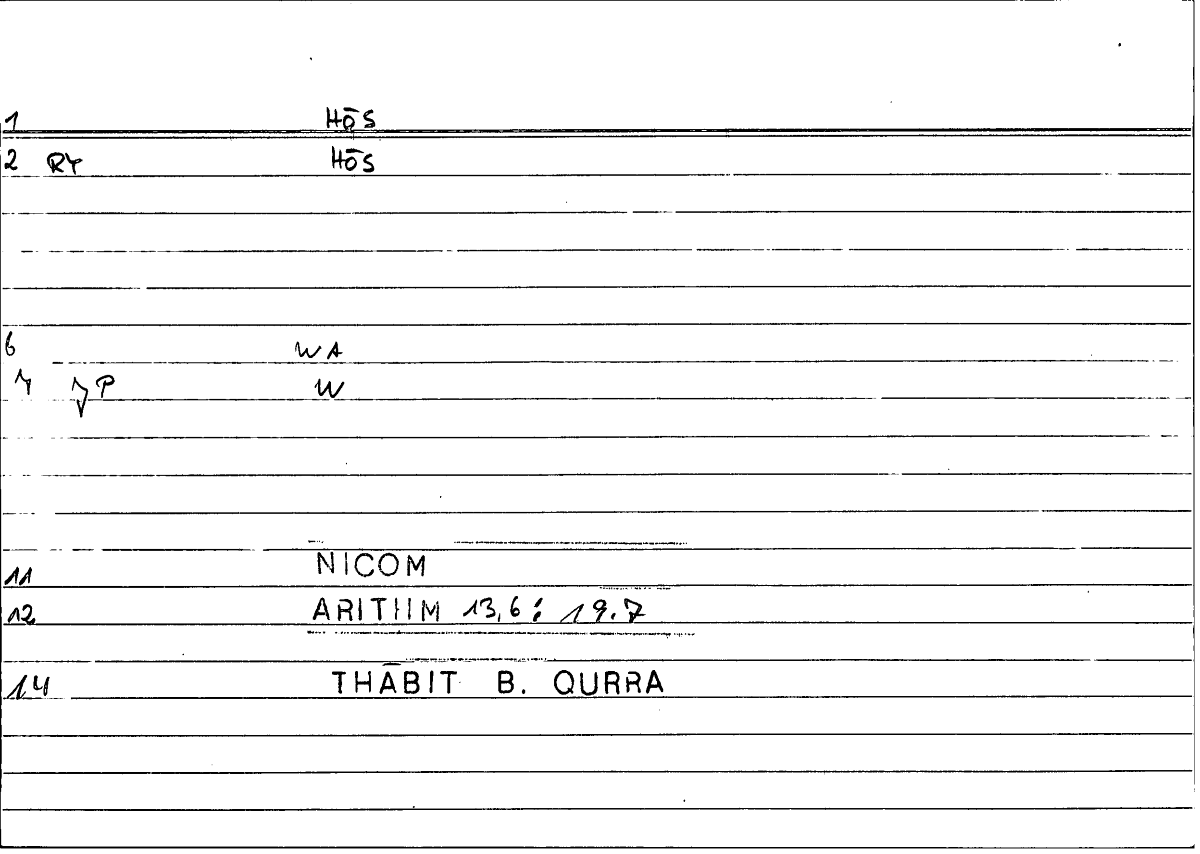 1 HŌS
2 RY HŌS
6 WA
7 P W
11 NICOM
12 ARITHM 13,6: 19.7
14 THĀBIT B. QURRA